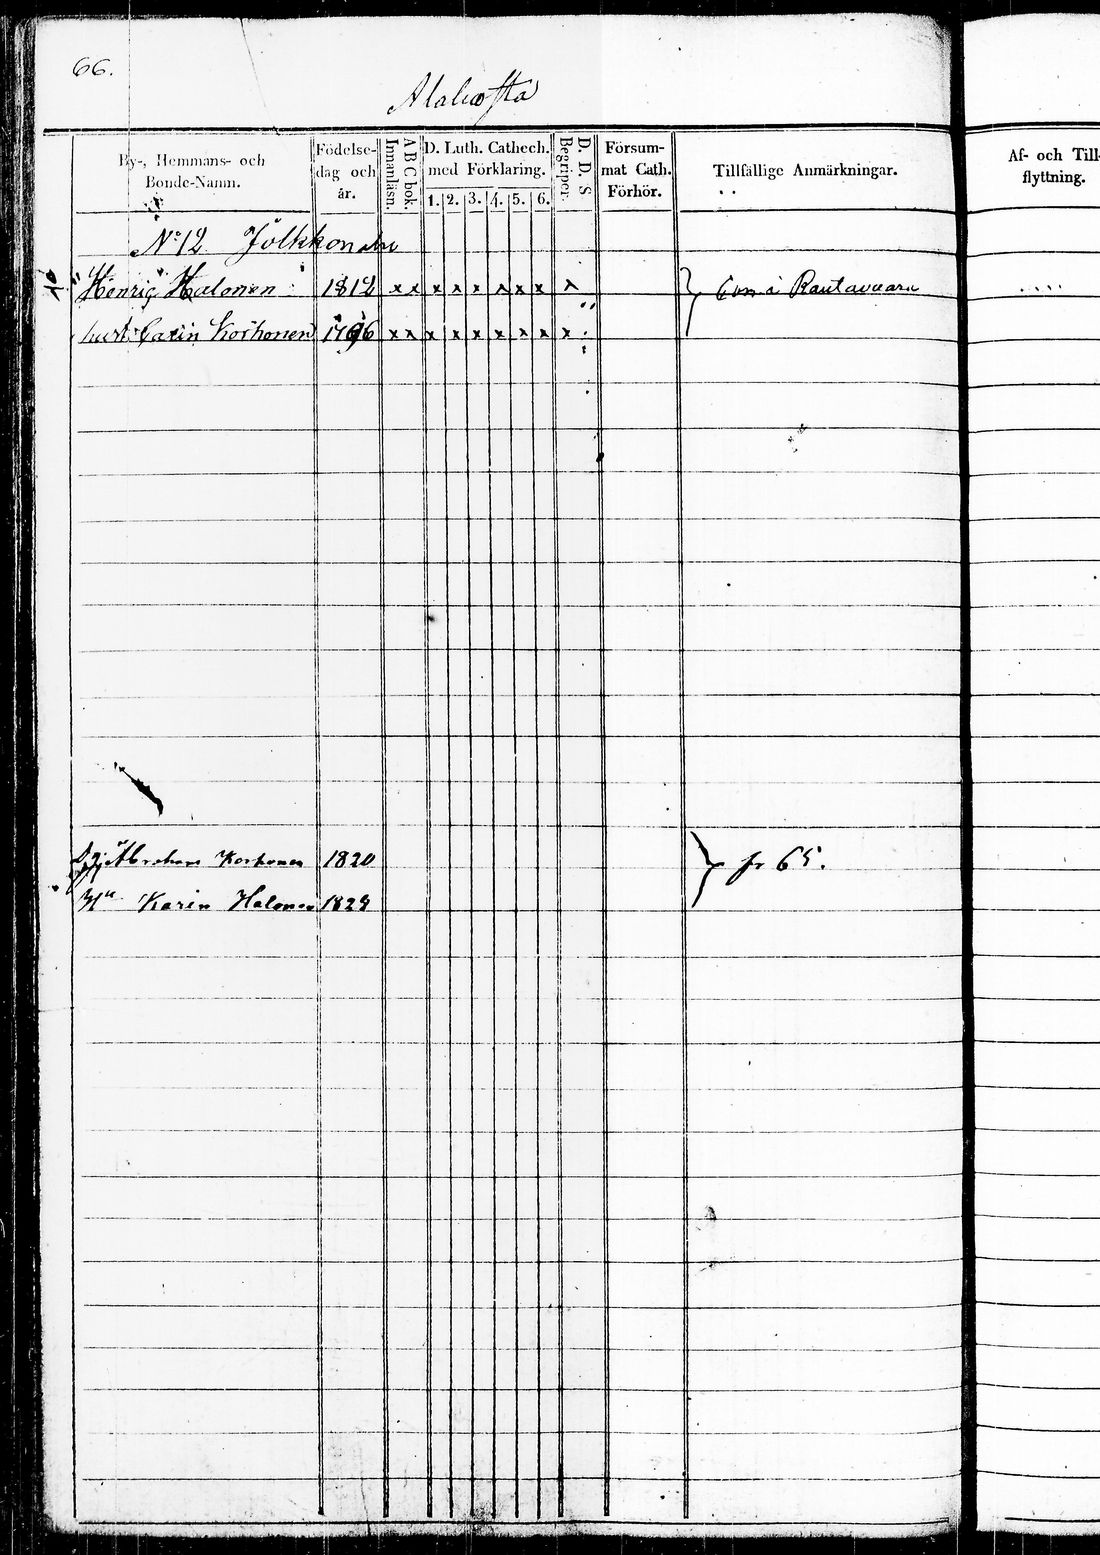 66.
By-, Hemmans- och Bonde-Namn.
Födelse-dag och år.
Innanläsn.
A B C bok.
D. Luth. Cathech. med Förklaring.
1. 2. 3. 4. 5. 6.
Begriper.
D. D. S.
Försum-mat Cath. Förhör.
Tillfällige Anmärkningar.
Af- och Till-flyttning.
No 12
Henric Halonen 1812 x x x x x x x x x Rautavaara
hust. Carin Korhonen x x x x x x x x x
Abraham Korhonen 1820 fr 65.
Hu Karin Halonen